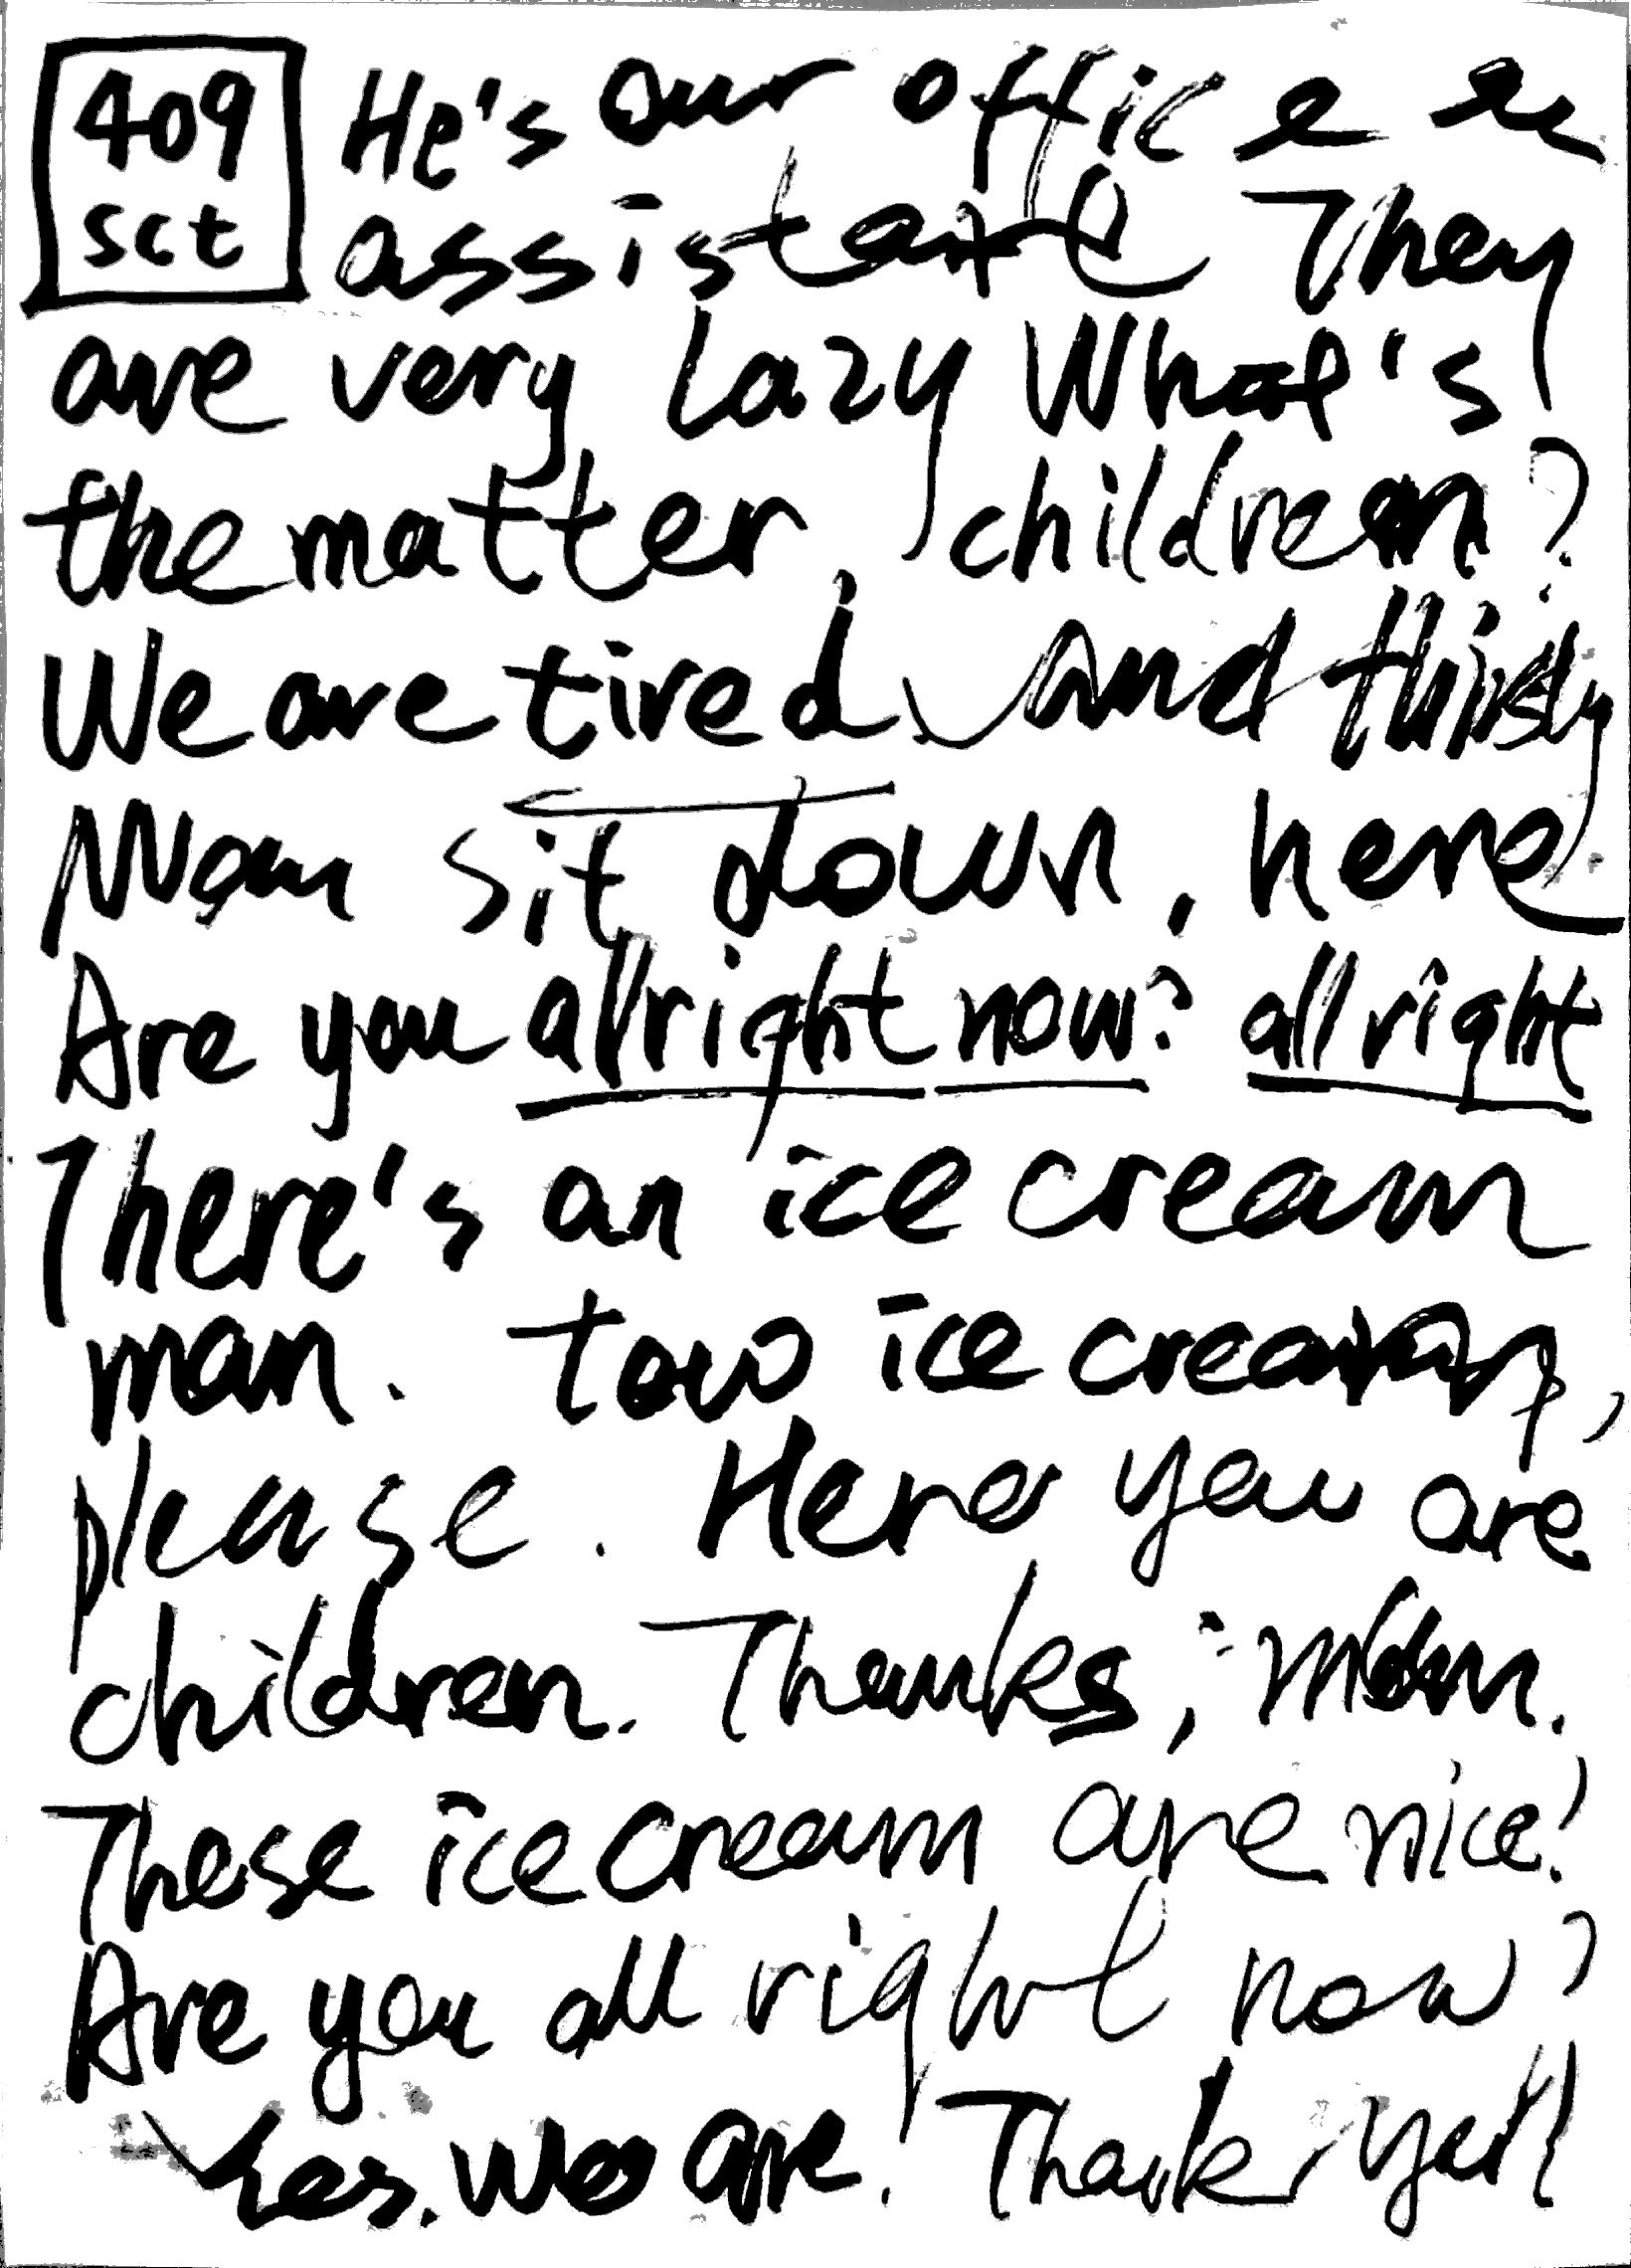 409 He's our office
sct assistant They
are very lazy What's
the matter, children?
We are tired and thirsty
sit down, here
Are you allright now? all right
There's an ice cream
man. tow ice cream,
please. Here you are
children. Thanks, Mom.
These ice cream are nice!
Are you all right now?
Yes. We are! Thank you!